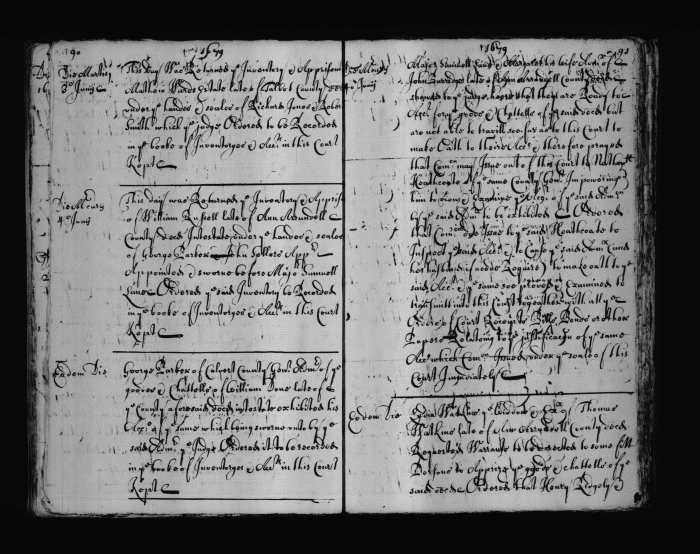 90
1679
Die Martis
3o Junij
This day was Returned ye Inventory & Apprisem
Mathew Ward gent late of Talbot County
under ye hands & seales of Richard Jones & Rober
Smith which ye judge Ordered to be Recorded
in ye booke of Inventoryes & Acct in this Court
Kept
Die Mercurij
4o Junij
This day was Returned ye Inventory & Appris
of William Russell late of Ann Arundell
County decd Intestate under ye hands & seales
of George Parker John Sollers Appr
Appointed & sworne before Major Samuell
Lane Ordered ye said Inventory be Recorded
in ye booke of Inventoryes & Acct in this Court
Kept
Eodem Die
George Parker of Calvert County Gent Admr of ye
goods & Chattells of William Done late of
ye County aforesaid decd intestate exhibited his
Acct of ye same which being sworne unto by ye
said Admr ye Judge Ordered it to be recorded
in ye booke of Inventoryes & Acct in this Court
Kept
1679
91
Major Samuell Lane & Margaret his wife
John Burrage late of Ann Arundell County
ye judge that they are Ready to
Acct for ye goods & Chattells of ye said decd but
are not able to travill soe far as to this Court to
make Oath to their Acct & therefore prayed
that Comn may Issue out of this Court to Nath
Heathcote of ye same County Gent Impowering
him to & Examine ye Acct of ye said
by ye said to be exhibited Ordered
that Comn Issue to ye said Heathcote to
Inspect ye said Acct & to Cause ye said
her husband to make oath to ye
said Acct & ye same soe proved & Examined to
transmitt into this Court together with all ye
Orders of Court Receipts Bills Bonds or other
Papers Relating to ye justificacon of ye same
Acct which Comn Issued under ye seale of this
Court Immediately
Eodem Die
Lydia Watkins ye Widdow & Exx of Thomas
Watkins late of Ann Arrundell County decd
Requests Warrant to be directed to some fitt
Persons to Apprize ye goods & Chattells of ye
said decd Ordered that Henry Ridgely &